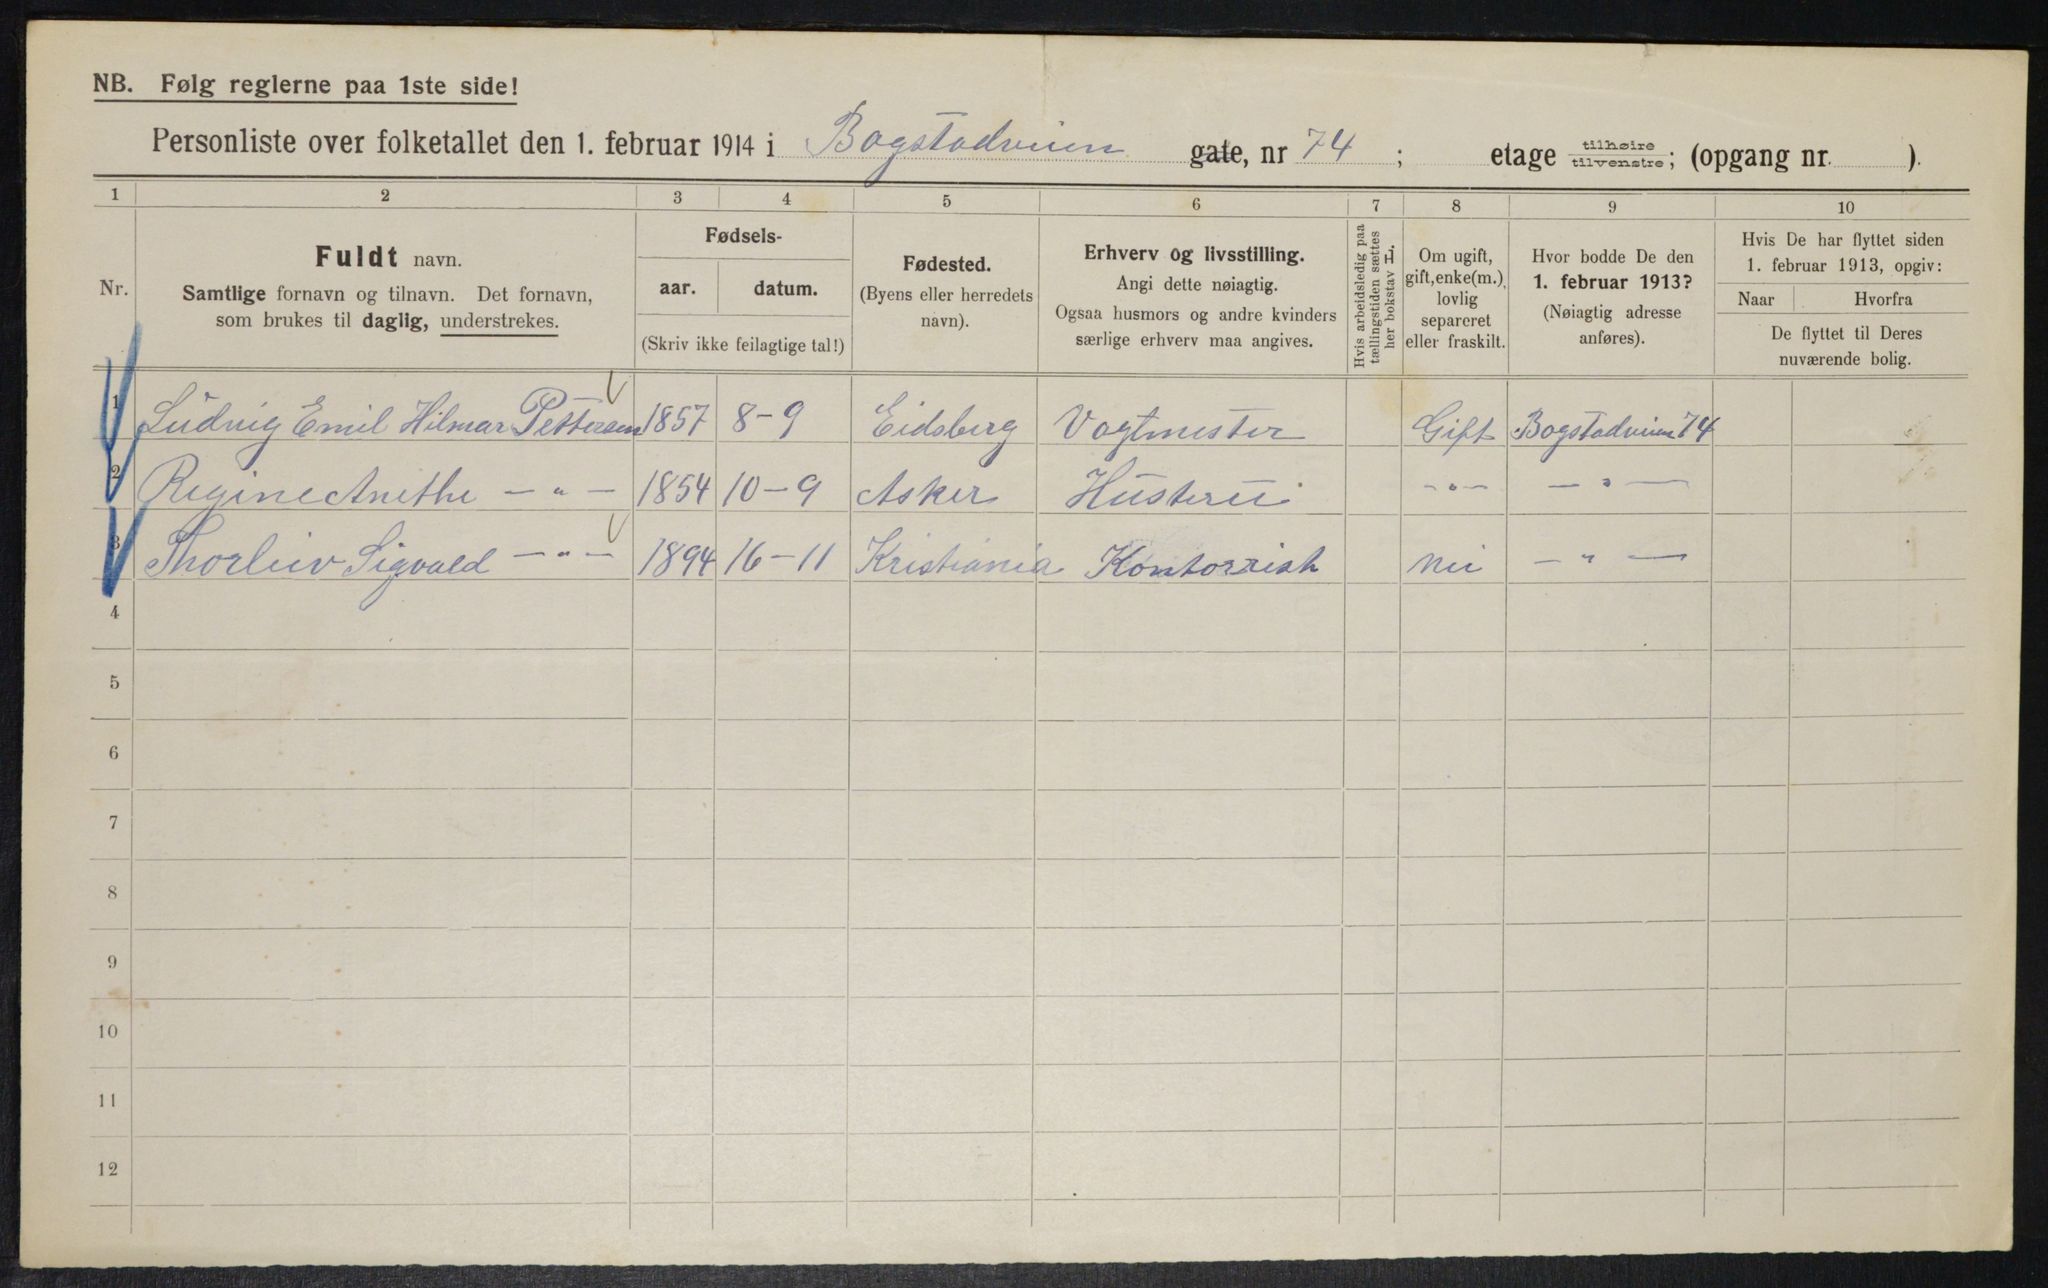 NB. Følg reglerne paa 1ste side!
Personliste over folketallet den 1. februar 1914 i Bogstadveien gate, nr 74 ; etage tilhøire tilvenstre; (opgang nr. ).
1 2 3 4 5 6 7 8 9 10
Nr.
Fuldt navn.
Samtlige fornavn og tilnavn. Det fornavn,
som brukes til daglig, understrekes.
Fødsels-
aar. datum.
(Skriv ikke feilagtige tal!)
Fødested.
(Byens eller herredets
navn).
Erhverv og livsstilling.
Angi dette nøiagtig.
Ogsaa husmors og andre kvinders
særlige erhverv maa angives.
Hvis arbeidsledig paa
tællingstiden sættes
her bokstav L.
Om ugift,
gift, enke(m.),
lovlig
separeret
eller fraskilt.
Hvor bodde De den
1. februar 1913?
(Nøiagtig adresse
anføres).
Hvis De har flyttet siden
1. februar 1913, opgiv:
Naar Hvorfra
De flyttet til Deres
nuværende bolig.
1 Ludvig Emil Hilmar Pettersen 1857 8-9 Eidsberg Vogtmester Gift Bogstadveien 74
2 Regine Anethe — „ — 1854 10-9 Asker Husterü — „ — — „ —
3 Thorleiv Sigvald — „ — 1894 16-11 Kristiania Kontorrist Nei — „ —
4
5
6
7
8
9
10
11
12